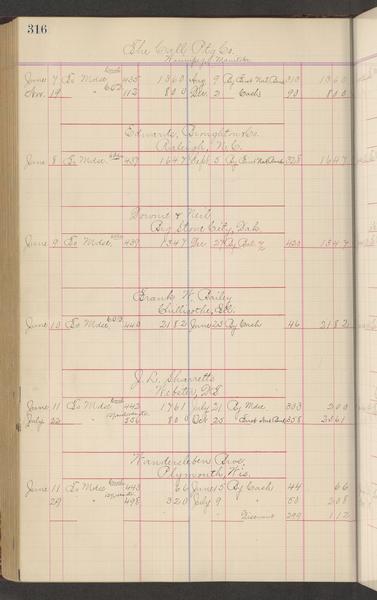 316
The Call Ptg Co.
Winnipeg, Manitoba
June 7 To Mdse 435 1360 Aug 9 By First Nat Bank 310 1360
Nov. 19 " C.O.D. 112 800 Dec. 2 Cash 90 800
Edwards, Broughton & Co.
Raleigh, N.C.
June 8 To Mdse 437 1647 Sept 5 By First Nat Bank 328 1647
Downe & Neil
Big Stone City, Dak.
June 9 To Mdse 439 1347 Dec 27 By Bal 420 1347
Frank W. Bailey
Chillicothe, Ill.
June 10 To Mdse C.O.D. 440 2182 June 25 By Cash 46 2182
J. L. Sharretts
Webster,
June 11 To Mdse 442 1761 July 21 By Mdse 303 200
July 22 " 556 800 Oct 25 First Nat Bank 358 2361
Wandersleben Bros.
Plymouth, Wis.
June 11 To Mdse 443 66 June 15 By Cash 44 66
29 " 498 320 July 9 " 50 208
Discount 299 112